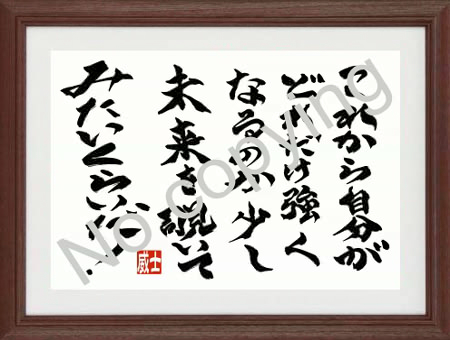 これから自分が
どれだけ強く
なるのか少し
未来を覗いて
みたいくらいだ!
威士
No copying